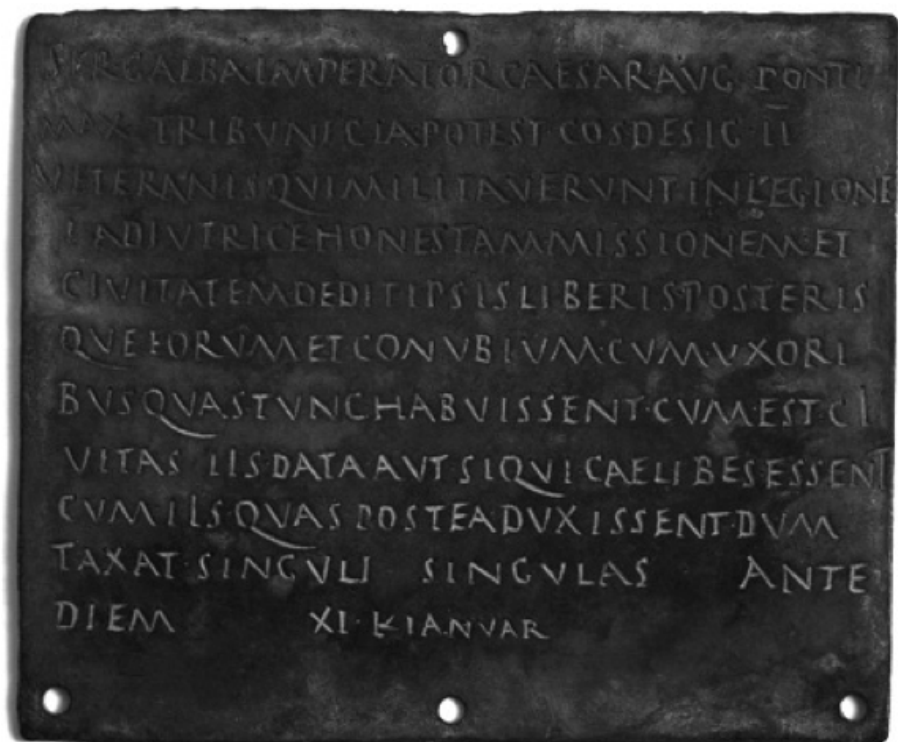 SER GALBA IMPERATOR CAESAR AVG PONTIF
MAX TRIBVNICIA·POTEST·COS DESIG·II
VETERANIS QVI MILITAVERVNT IN LEGIONE
I ADIVTRICE HONESTAM MISSIONEM ET
CIVITATEM DEDIT IPSIS LIBERIS POSTERIS
QVE EORVM ET CONVBIVM·CVM·VXORI
BVS QVAS TVNC HABVISSENT·CVM·EST·CI
VITAS IIS DATA AVT SI QVI CAELIBES ESSENT
CVM IIS QVAS POSTEA DVXISSENT·DVM
TAXAT·SINGVLI SINGVLAS ANTE
DIEM XI·K IANVAR